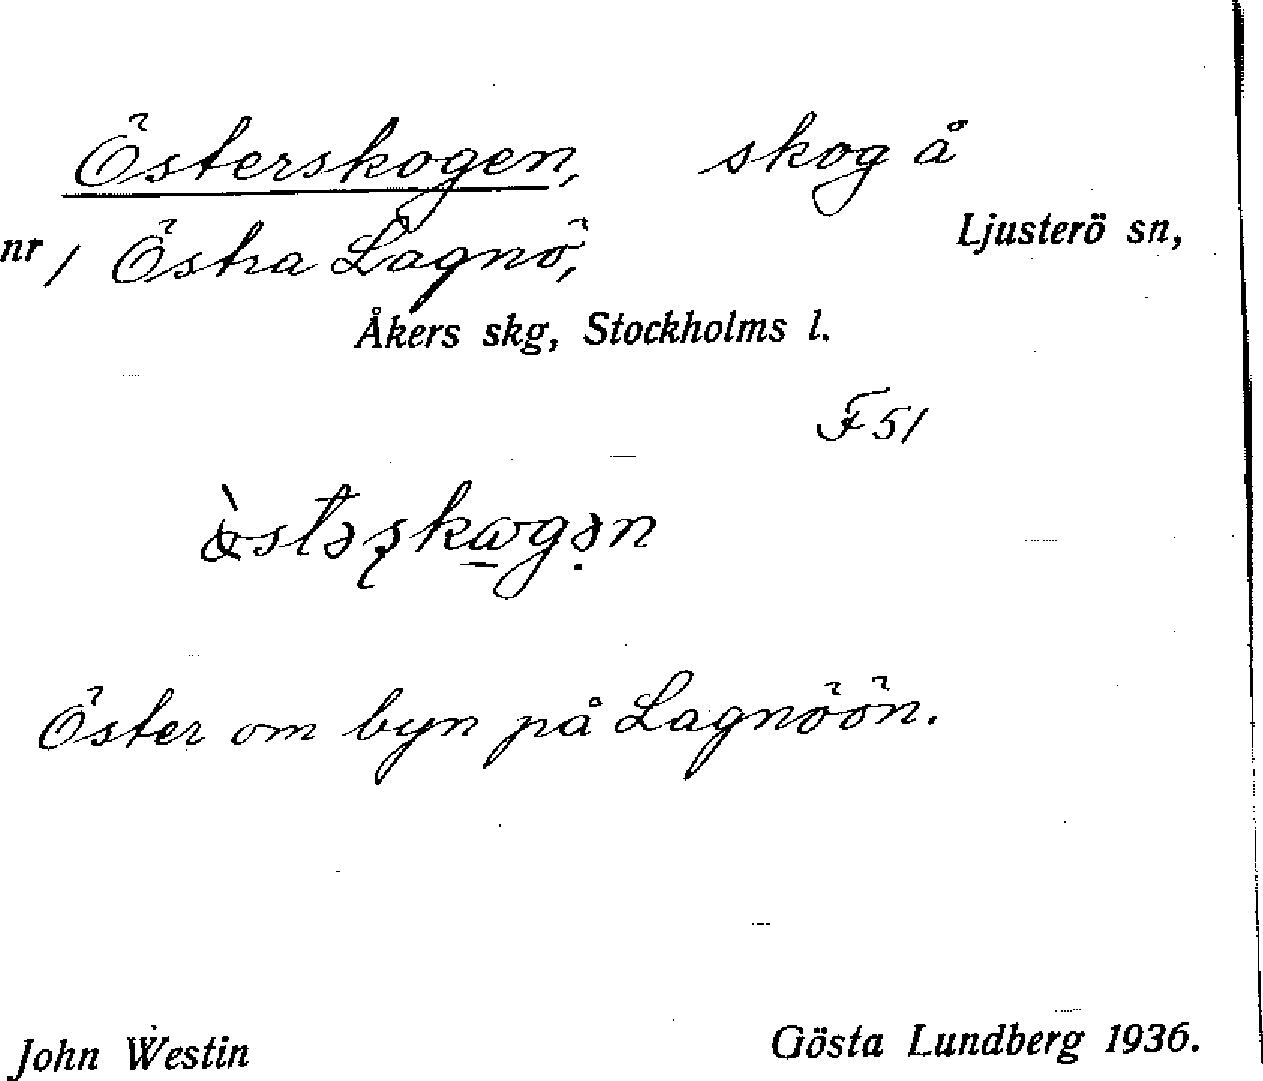 Österskogen, skog å
Ljusterö sn,
nr 1 Östra Lagnö,
Åkers skg, Stockholms l.
F 51
Öster om byn på Lagnöön.
John Westin Gösta Lundberg 1936.